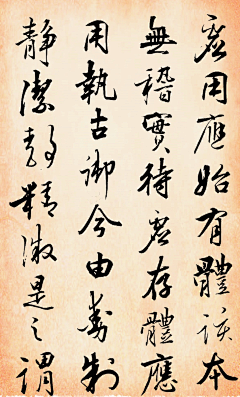 虛用應始有體該本
無稽實待虛存體應
用執古御今由制
靜潔靜精微是之謂